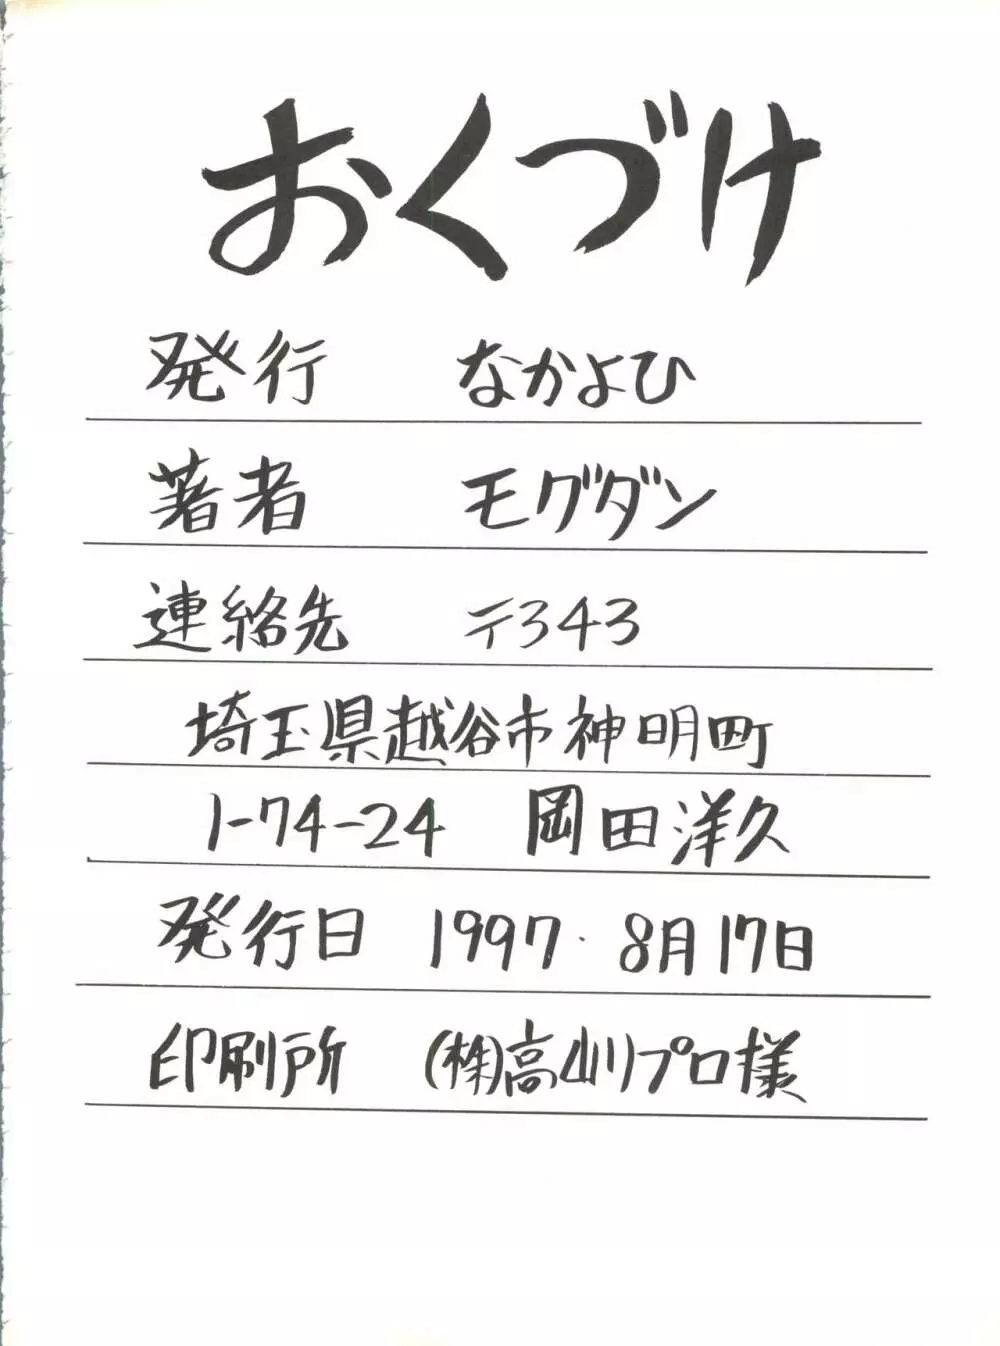 おくづけ
発行 なかよひ
著者 モグダン
連絡先 〒343
埼玉県越谷市神明町
1-74-24 岡田洋久
発行日 1997. 8月17日
印刷所 (株)高山リプロ様